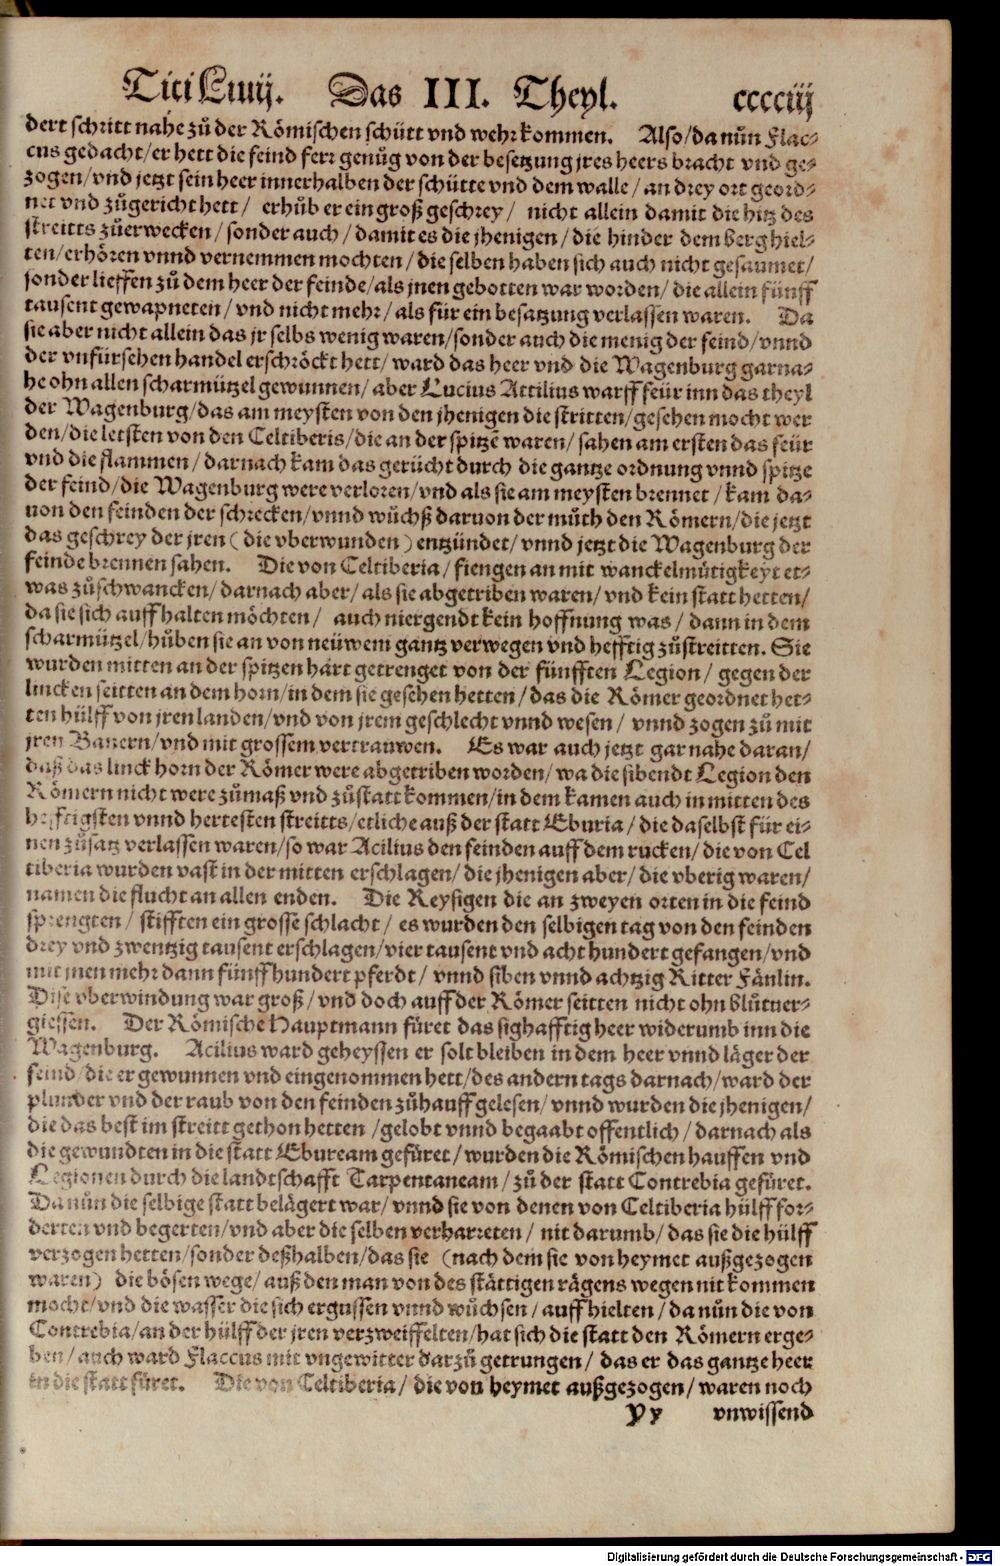 Titi Liuij. Das III. Theyl. cccciij
dert schritt nahe zů der Römischen schütt vnd wehr kommen. Also/ da nůn Flac⸗
cus gedacht/ er hett die feind ferr genůg von der besetzung jres heers bracht vnd ge⸗
zogen/ vnd jetzt sein heer innerhalben der schütte vnd dem walle/ an drey ort geord⸗
net vnd zůgericht hett/ erhůb er ein groß geschrey/ nicht allein damit die hitz des
streitts zůerwecken/ sonder auch/ damit es die jhenigen/ die hinder dem berg hiel⸗
ten/ erhören vnnd vernemmen mochten/ die selben haben sich auch nicht gesaumet/
sonder lieffen zů dem heer der feinde/ als jnen gebotten war worden/ die allein fünff
tausent gewapneten/ vnd nicht mehr/ als für ein besatzung verlassen waren. Da
sie aber nicht allein das jr selbs wenig waren/ sonder auch die menig der feind/ vnnd
der vnfürsehen handel erschröckt hett/ ward das heer vnd die Wagenburg gar na⸗
he ohn allen scharmützel gewunnen/ aber Lucius Attilius warff feür inn das theyl
der Wagenburg/ das am meysten von den jhenigen die stritten/ gesehen mocht wer
den/ die letsten von den Celtiberis/ die an der spitzẽ waren/ sahen am ersten das feür
vnd die flammen/ darnach kam das gerücht durch die gantze ordnung vnnd spitze
der feind/ die Wagenburg were verloren/ vnd als sie am meysten brennet/ kam da⸗
uon den feinden der schrecken/ vnnd wůchß daruon der můth den Römern/ die jetzt
das geschrey der jren (die vberwunden) entzündet/ vnnd jetzt die Wagenburg der
feinde brennen sahen. Die von Celtiberia/ fiengen an mit wanckelmůtigkeyt et⸗
was zůschwancken/ darnach aber/ als sie abgetriben waren/ vnd kein statt hetten/
da sie sich auffhalten möchten/ auch niergendt kein hoffnung was/ dann in dem
scharmützel/ hůben sie an von neüwem gantz verwegen vnd hefftig zůstreitten. Sie
wurden mitten an der spitzen hart getrenget von der fünfften Legion/ gegen der
lincken seitten an dem horn/ in dem sie gesehen hetten/ das die Römer geordnet het⸗
ten hülff von jren landen/ vnd von jrem geschlecht vnnd wesen/ vnnd zogen zů mit
jren Banern/ vnd mit grossem vertrauwen. Es war auch jetzt gar nahe daran/
daß das linck horn der Römer were abgetriben worden/ wa die sibendt Legion den
Römern nicht were zůmaß vnd zůstatt kommen/ in dem kamen auch in mitten des
hefftigsten vnnd hertesten streitts/ etliche auß der statt Eburia/ die daselbst für ei⸗
nen zůsatz verlassen waren/ so war Acilius den feinden auff dem rucken/ die von Cel
tiberia wurden vast in der mitten erschlagen/ die jhenigen aber/ die vberig waren/
namen die flucht an allen enden. Die Reysigen die an zweyen orten in die feind
sprengten/ stifften ein grosse schlacht/ es wurden den selbigen tag von den feinden
drey vnd zwentzig tausent erschlagen/ vier tausent vnd acht hundert gefangen/ vnd
mit jnen mehr dann fünffhundert pferdt/ vnnd siben vnnd achtzig Ritter Fänlin.
Dise vberwindung war groß/ vnd doch auff der Römer seitten nicht ohn blůtuer⸗
giessen. Der Römische Hauptmann füret das sighafftig heer widerumb inn die
Wagenburg. Acilius ward geheyssen er solt bleiben in dem heer vnnd läger der
feind/ die er gewunnen vnd eingenommen hett/ des andern tags darnach/ ward der
plunder vnd der raub von den feinden zůhauff gelesen/ vnnd wurden die jhenigen/
die das best im streitt gethon hetten/ gelobt vnnd begaabt offentlich/ darnach als
die gewundten in die statt Ebuream gefüret/ wurden die Römischen hauffen vnd
Legionen durch die landtschafft Tarpentaneam/ zů der statt Contrebia gefüret.
Da nůn die selbige statt belägert war/ vnnd sie von denen von Celtiberia hülff for⸗
derten vnd begerten/ vnd aber die selben verharreten/ nit darumb/ das sie die hülff
verzogen hetten/ sonder deßhalben/ das sie (nach dem sie von heymet außgezogen
waren) die bösen wege/ auß den man von des stättigen rägens wegen nit kommen
mocht/ vnd die wasser die sich ergussen vnnd wůchsen/ auffhielten/ da nůn die von
Contrebia/ an der hülff der jren verzweiffelten/ hat sich die statt den Römern erge⸗
ben/ auch ward Flaccus mit vngewitter darzů getrungen/ das er das gantze heer
in die statt füret. Die von Celtiberia/ die von heymet außgezogen/ waren noch
Yy vnwissend
Digitalisierung gefördert durch die Deutsche Forschungsgemeinschaft - DFG